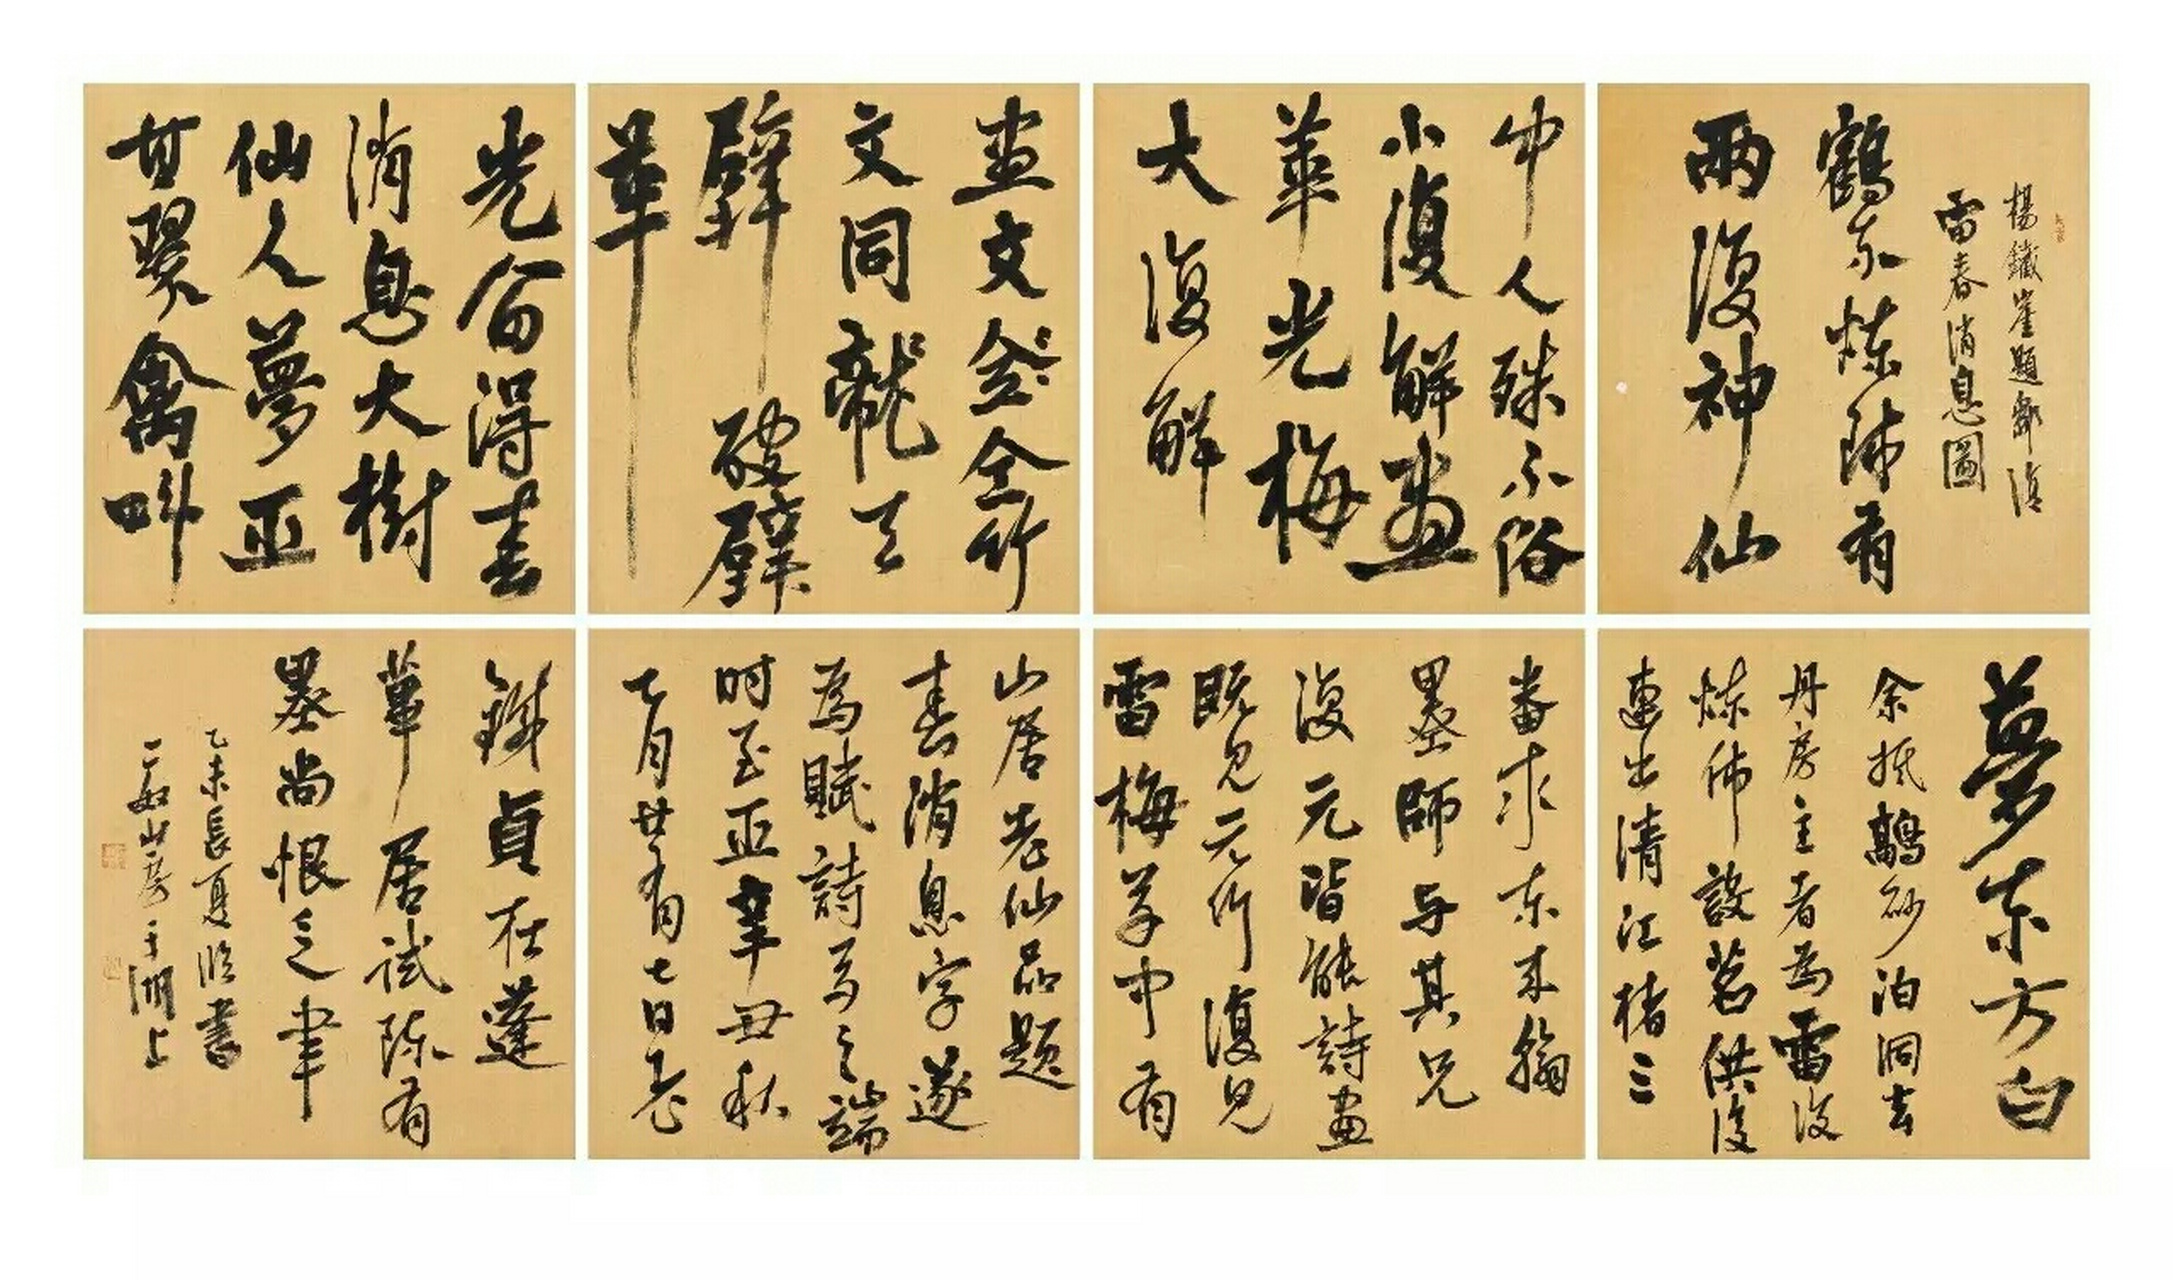 楊鐵崖題鄒復
雷春消息圖
鶴東煉師有
兩復神仙
中人殊不俗
小復解畫
華光梅
大復解
畫文竹
文同龍天
擘破壁
華
光留得春
消息大樹
仙人夢正
甘翠禽叫
夢東方白
余抵鶴砂泊洞玄
丹房主者為雷復
煉師設茗供復
連出清江楮三
番求東來翰
墨師与其兄
復元皆能詩畫
既見元竹復見
雷梅羊中有
山居老仙品題
春消息字遂
為賦詩卷之端
時至正辛丑秋
七月廿有七日老
鐵貞在蓬
蓽居試陳有
墨尚恨乏筆
乙未長夏臨書
二如山房于湖上